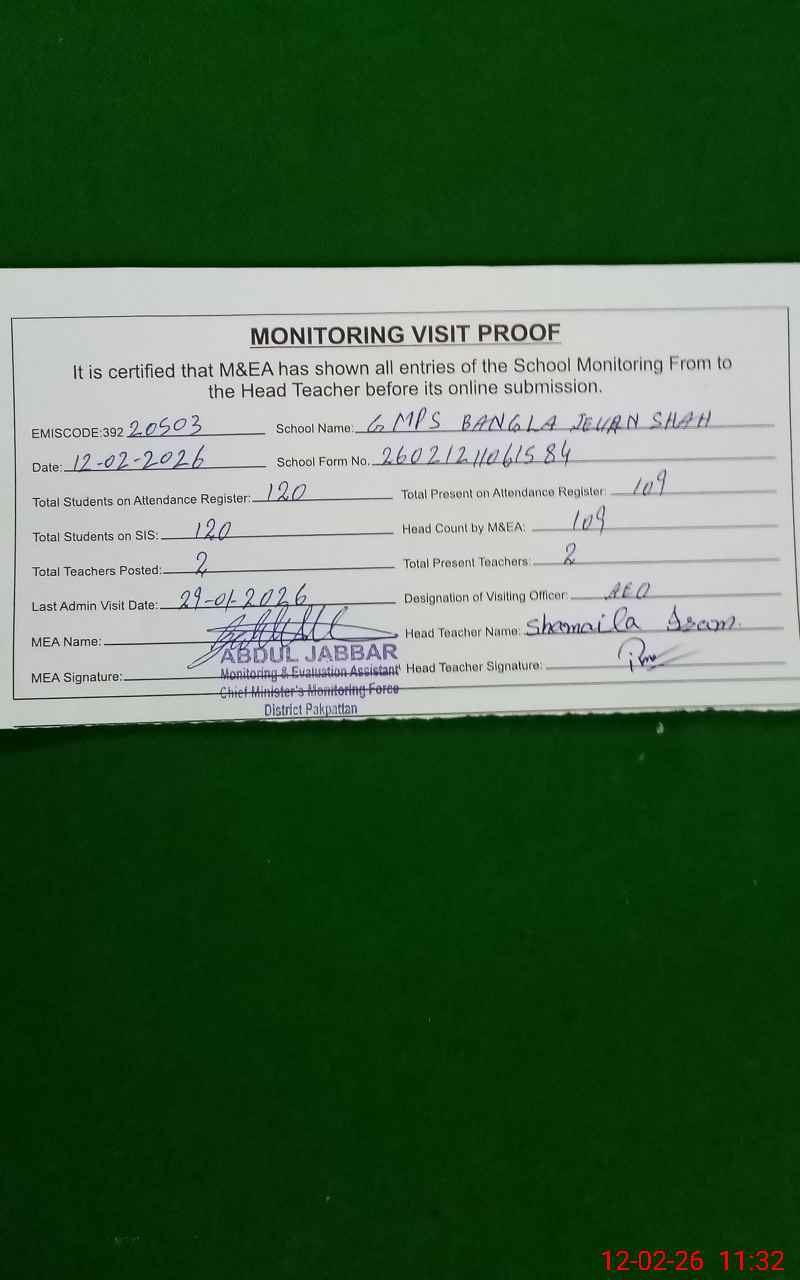 MONITORING VISIT PROOF
It is certified that M&EA has shown all entries of the School Monitoring From to
the Head Teacher before its online submission.
EMISCODE:392 20503 School Name: GMPS BANGLA JEVAN SHAH
Date: 12-02-2026 School Form No. 26021211061584
Total Students on Attendance Register: 120 Total Present on Attendance Register: 109
Total Students on SIS: 120 Head Count by M&EA: 109
Total Teachers Posted: 2 Total Present Teachers: 2
Last Admin Visit Date: 29-01-2026 Designation of Visiting Officer: AEO
MEA Name: Head Teacher Name: Shamaila
ABDUL JABBAR
MEA Signature: Monitoring & Evaluation Assistant Head Teacher Signature:
Chief Minister's Monitoring Force
District Pakpattan
12-02-26 11:32